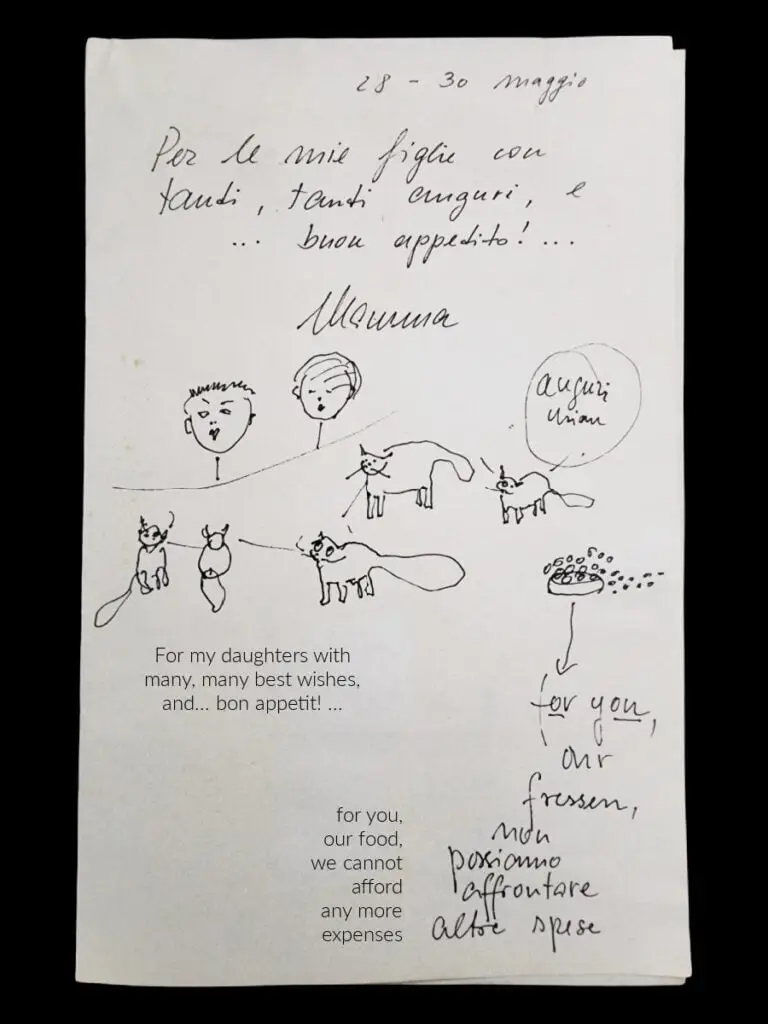 28 - 30 maggio
Per le mie figlie con
tanti, tanti auguri, e
... buon appetito! ...
Mamma
auguri
miau
For my daughters with
many, many best wishes,
and... bon appetit! ...
for you,
our
fressen,
non
possiamo
affrontare
altre spese
for you,
our food,
we cannot
afford
any more
expenses